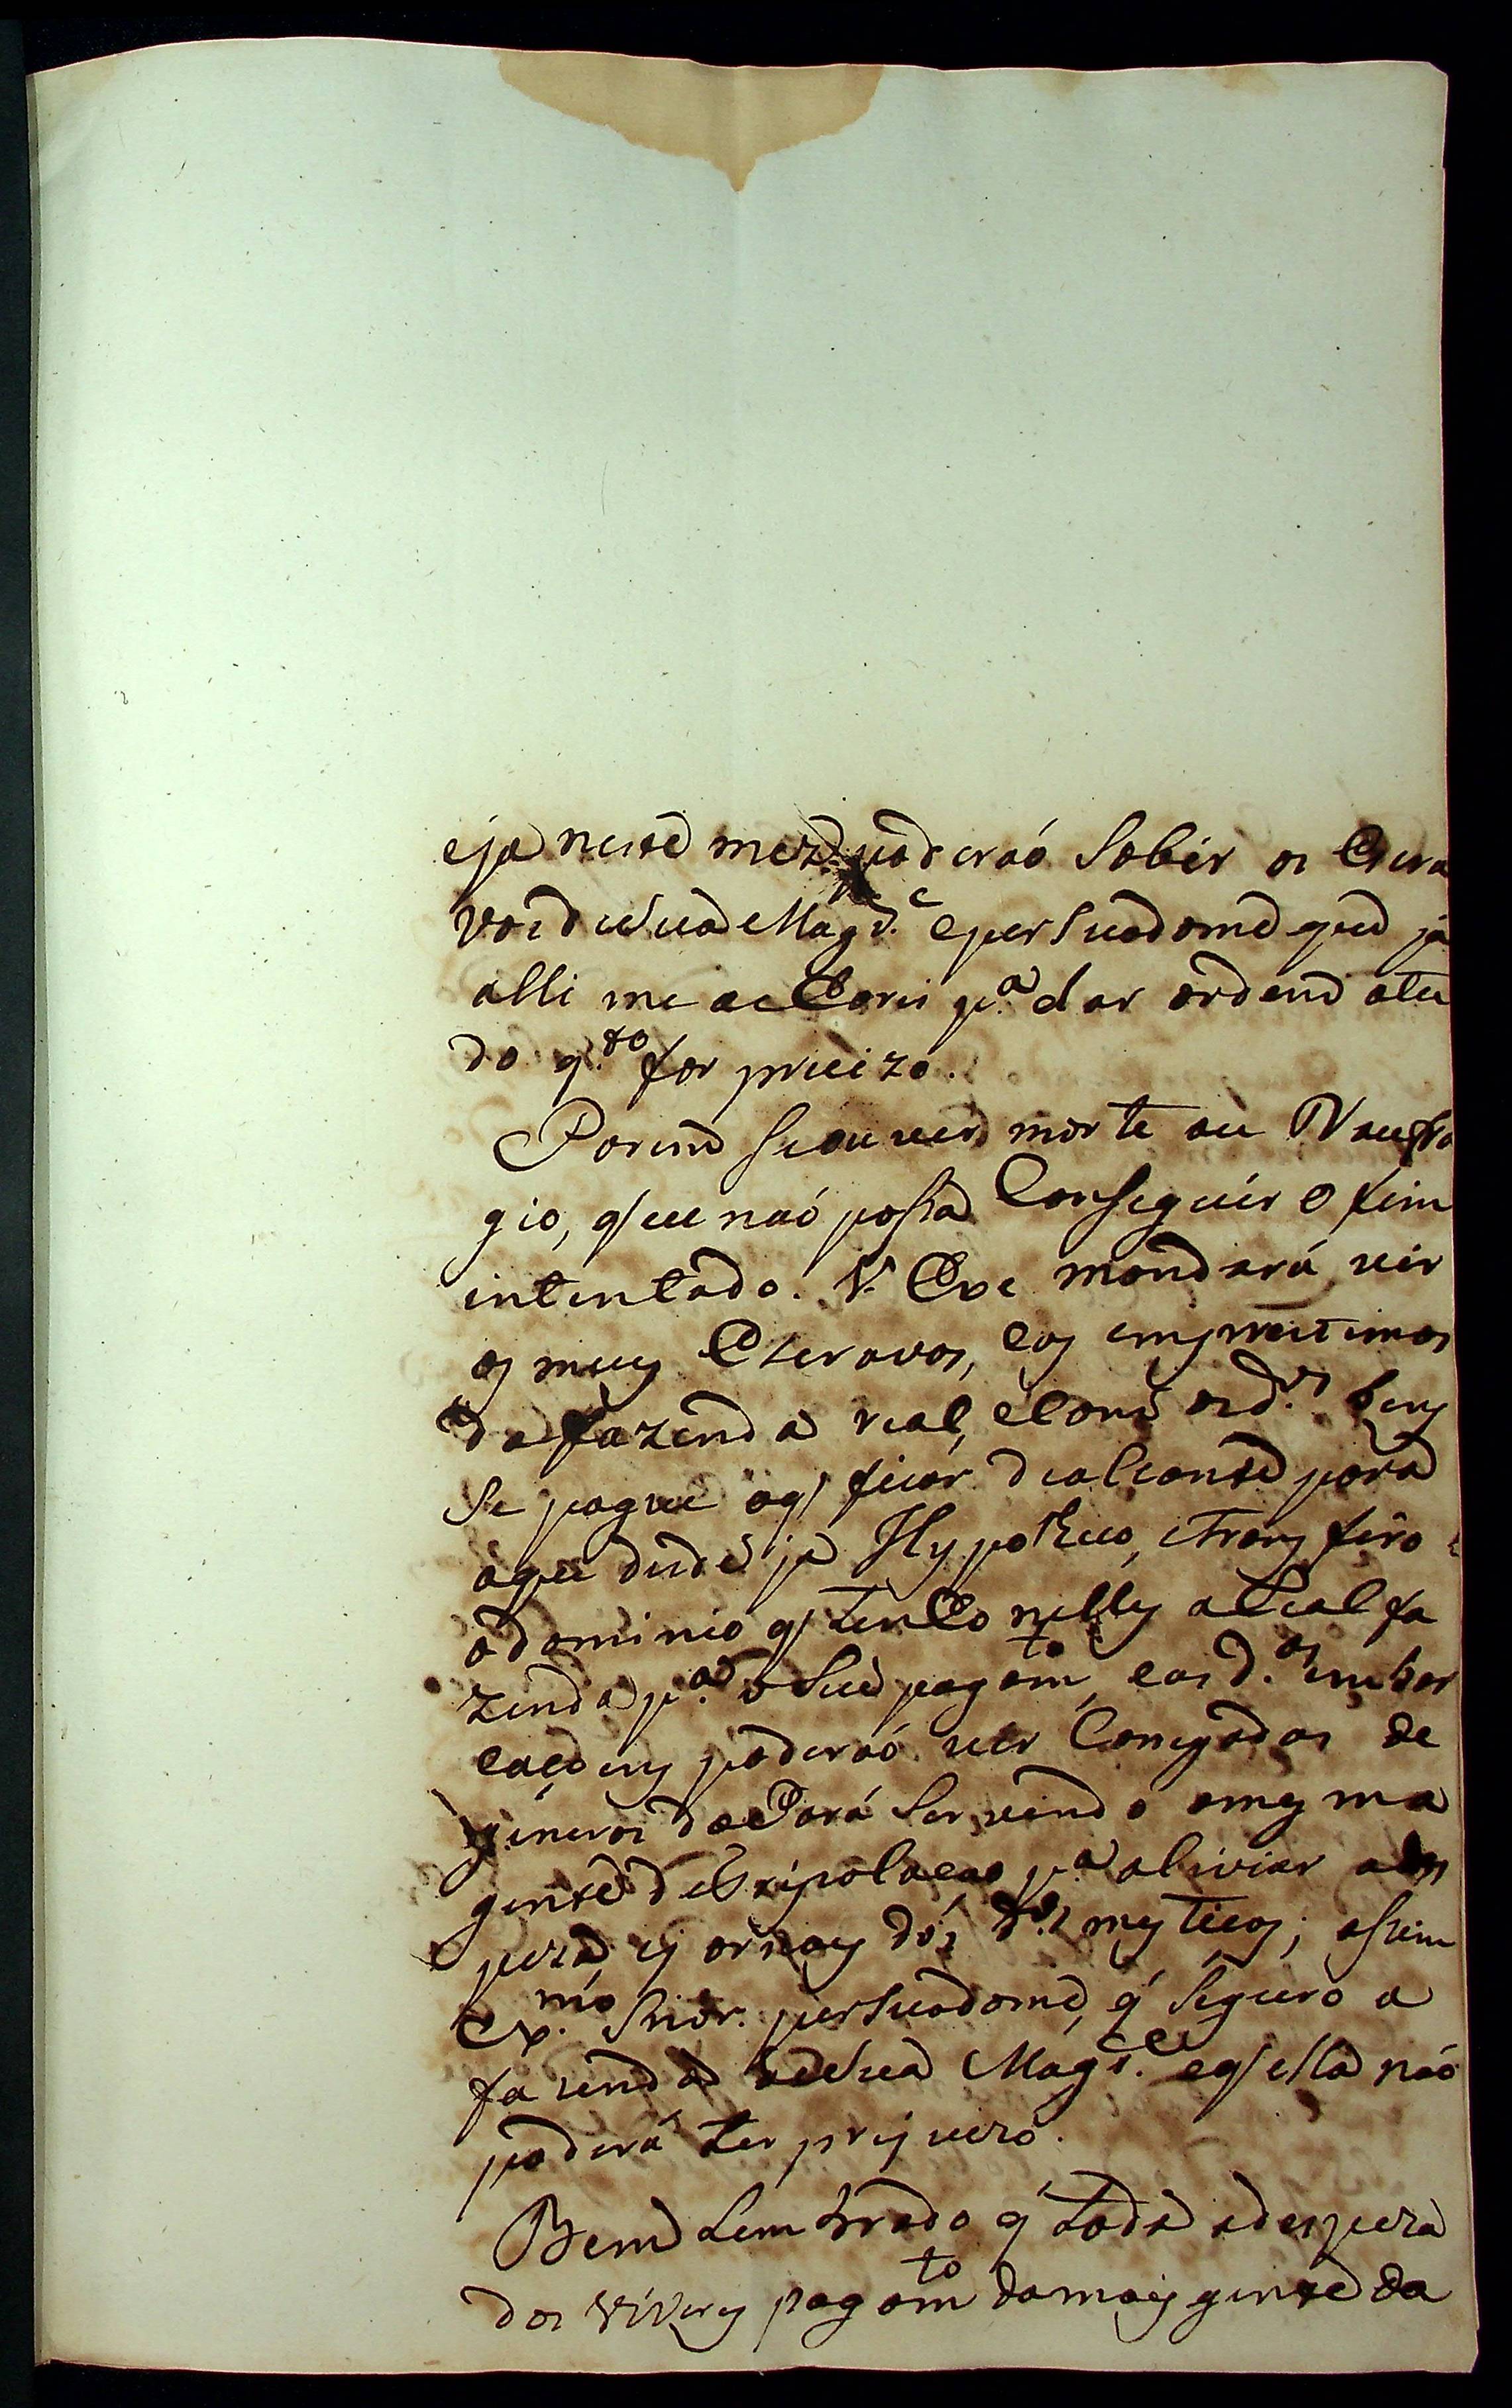 eja neste mez poderaó Sobir os Escra
vos de Sua Mag.de e persuadome que ja
alli me acharei p.a dar ordem atu
do q.to for preciso.
Porem se ouuer morte ou Naufra
gio, que naó possa Conseguir o fim
intentado. V. Exc mandará vir
os meus Escravos, e os emprestimos
da fazenda real, e Com os d.os bens
se pague oq ficar de alcanse para
oque desde ja Hypoteco, e transfiro
o dominio q tenho nelles a Real fa
zenda p.a o Seu pagam.to, e as d.as embar
caçoens poderaó vir Carregadas de
generos do Pará Servindo a mesma
gente de Expolaçao p.a aliviar a des
peza, e jornaes dos d.os mesticos; assim
Ex.mo Snór. persuadome, q' Seguro a
fazenda de Sua Mag.de e q esta naó
poderá ter prejuizo.
Bem Lembrado q' toda a despeza
dos víveres pagam.to da mais gente da